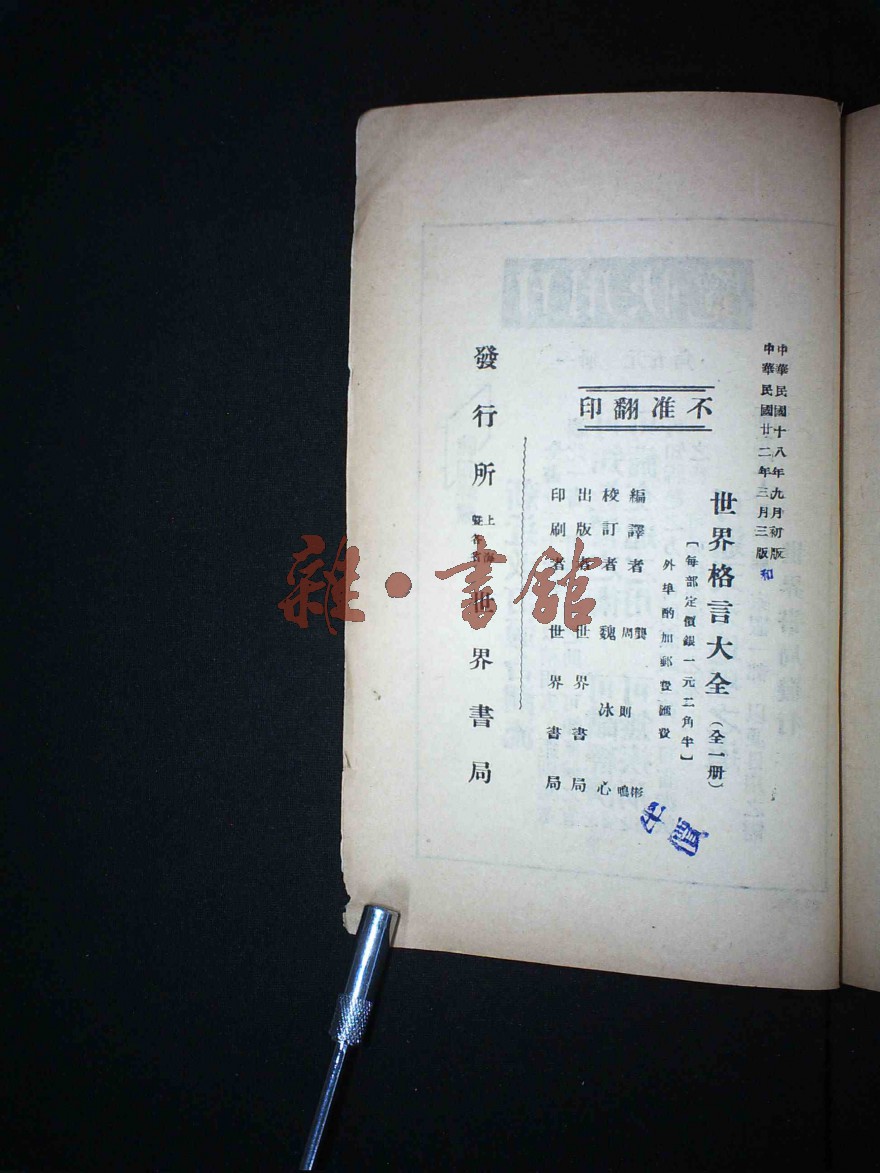 中華民國十八年九月初版
中華民國廿二年三月三版
和
世界格言大全（全一册）
［每部定價銀一元二角半］
外埠酌加郵費匯費
不准翻印
編譯者 龔則
周鳴
校訂者 魏冰心
出版者 世界書局
印刷者 世界書局
發行所 上海 世界書局
半價
雜·書館